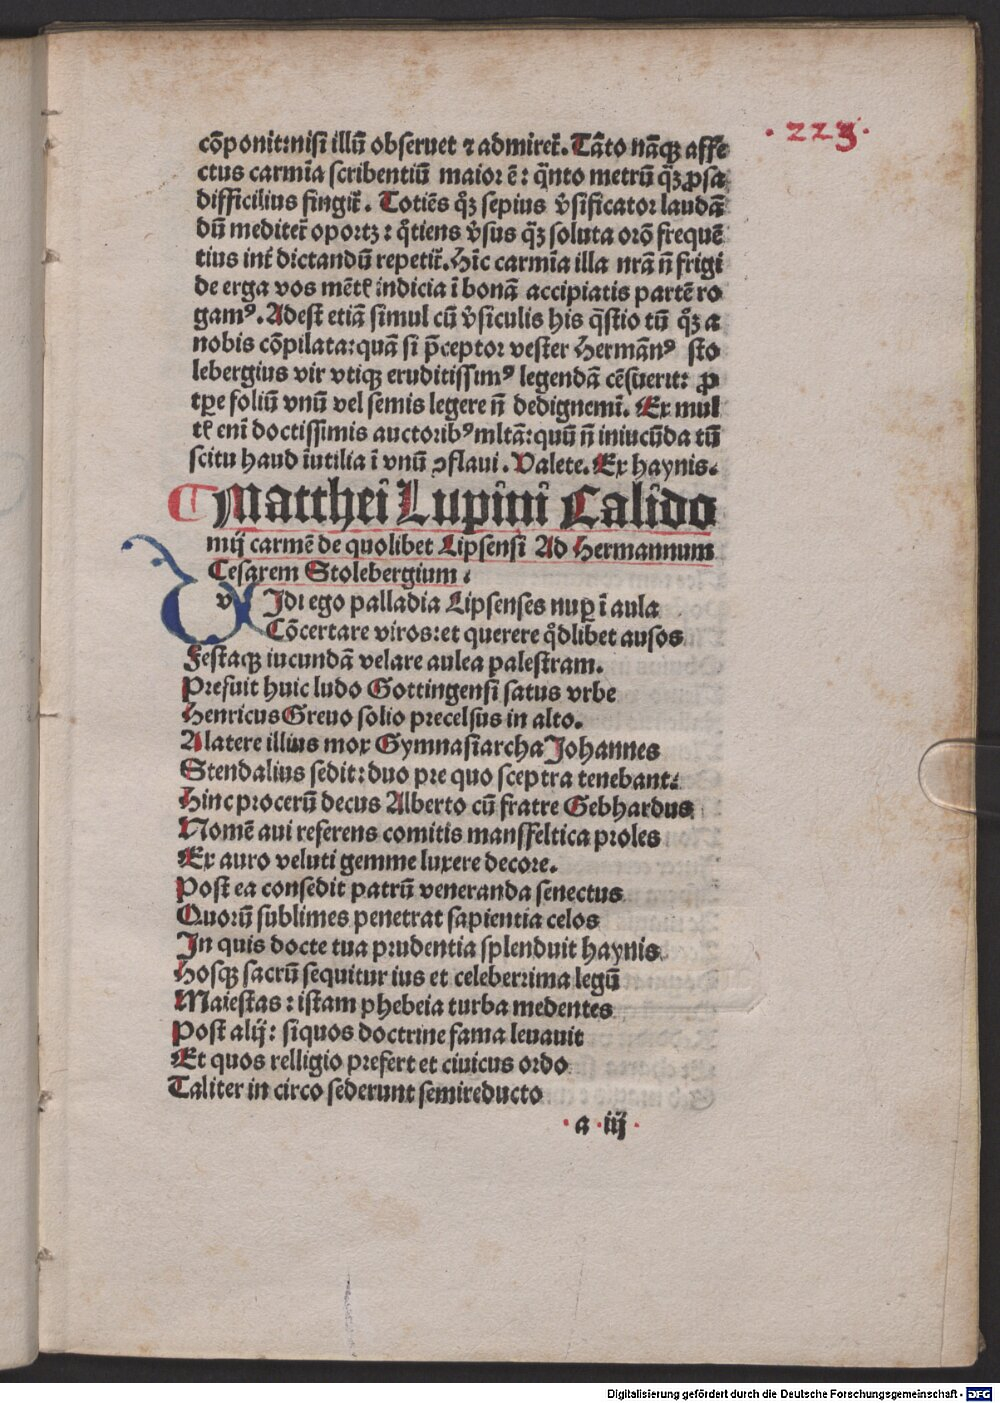 ·223·
cõponit:nisi illũ obseruet ⁊ admiret᷑. Tãto nãqꝫ affe
ctus carmĩa scribentiũ maior ẽ: q̃nto metrũ q̃ꝫ ꝓsa
difficilius fingit᷑. Totiẽs q̊ꝫ sepius v̾sificator laudã
dũ meditet᷑ oportꝫ: q̊tiens v̾sus q̃ꝫ soluta orõ frequẽ
tius int̾ dictandũ repetit᷑. Hĩc carmĩa illa nr̃ã nõ frigi
de erga vos mẽtꝭ indicia ĩ bonã accipiatis partẽ ro
gamꝰ. Adest etiã simul cũ v̾siculis his q̃stio tũ q̃ꝫ a
nobis cõpilata: quã si p̃ceptor vester Hermãnꝰ sto
lebergius vir vtiqꝫ eruditissimꝰ legendã cẽsuerit: ꝓ
tꝑe foliũ vnũ vel semis legere nõ dedignemĩ. Ex mul
tꝭ enĩ doctissimis auctoribꝰ mltã: quũ nõ iniucũda tũ
scitu haud ĩutilia ĩ vnũ ꝯflaui. Valete. Ex haynis.
Matthei Lupini Calido
mij carmẽ de quolibet Lipsensi Ad Hermannum
Cesarem Stolebergium.
vIdi ego palladia Lipsenses nuꝑ ĩ aula
Cõcertare viros: et querere q̊dlibet ausos
Festaqꝫ iucundã velare aulea palestram.
Prefuit huic ludo Gottingensi satus vrbe
Henricus Greuo solio precelsus in alto.
A latere illius mox Gymnasiarcha Johannes
Stendalius sedit: duo pre quo sceptra tenebant:
Hinc procerũ decus Alberto cũ fratre Gebhardus
Nomẽ aui referens comitis mansfeltica proles
Ex auro veluti gemme luxere decore.
Post ea consedit patrũ veneranda senectus
Quorũ sublimes penetrat sapientia celos
In quis docte tua prudentia splenduit haynis
Hosqꝫ sacrũ sequitur ius et celeberrima legũ
Maiestas: istam phebeia turba medentes
Post alij: siquos doctrine fama leuauit
Et quos relligio prefert et ciuicus ordo
Taliter in circo sederunt semireducto
a iij
Digitalisierung gefördert durch die Deutsche Forschungsgemeinschaft - DFG